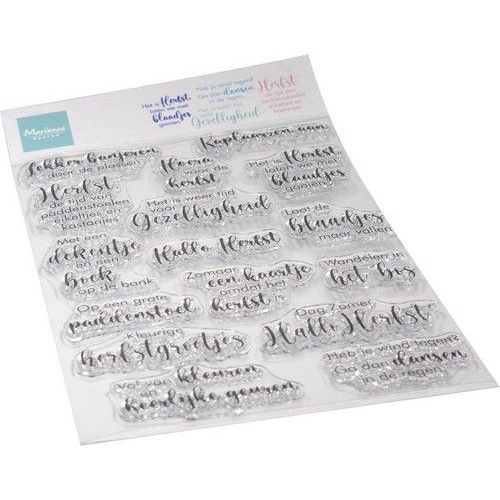 Het is Herfst
laten we met
blaadjes
gooien
Heb je wind tegen?
Ga dan dansen
in de regen
Het is weer tijd
voor
Gezelligheid
Herfst
de tijd van
paddenstoelen
padkeitjes en
kastanjes
Marianne
DESIGN
Kaplaarzen aan
Lekker banjeren
door de plassen
Hoera
voor de
herfst
Het is Herfst
laten we met
blaadjes
gooien
Herfst
de tijd van
paddenstoelen
padkeitjes en
kastanjes
Het is weer tijd
voor
Gezelligheid
Laat de
blaadjes
maar vallen
Met een
dekentje
en een
boek
op de bank
Hallo Herfst
Zomaar
een kaartje
omdat het
herfst is
Wandelen in
het bos
Op een grote
paddenstoel
Dag Zomer
Hallo Herfst
Kleurige
herfstgroetjes
Heb je wind tegen?
Ga dan dansen
in de regen
Vol van kleuren
en
heerlijke geuren